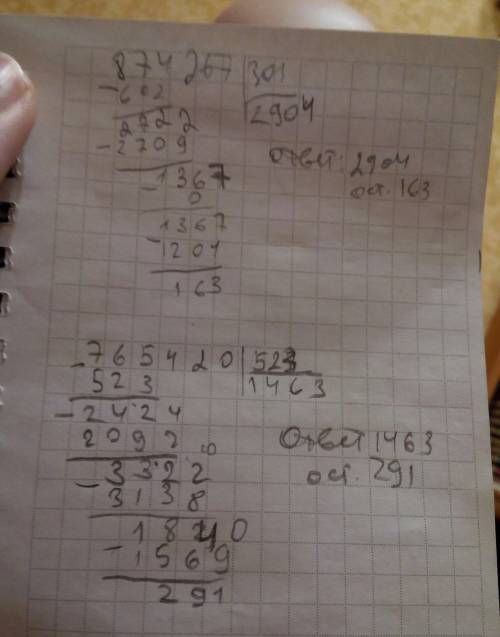 874267 301
- 602 2904
2722
- 2709
- 1367
0
1367
- 1204
163
Ответ: 2904
ост. 163
- 765420 523
523 1463
- 2424
2092
- 3322
3138
1840
- 1569
291
Ответ 1463
ост. 291